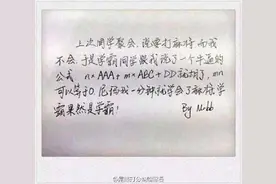 上次同学聚会，说要打麻将而我
不会，于是学霸同学跟我说了一个牛逼的
公式 n×AAA+m×ABC+DD就胡了，mn
可以等于0。尼玛我一分钟就学会了麻将学
霸果然是学霸！ By Mubb